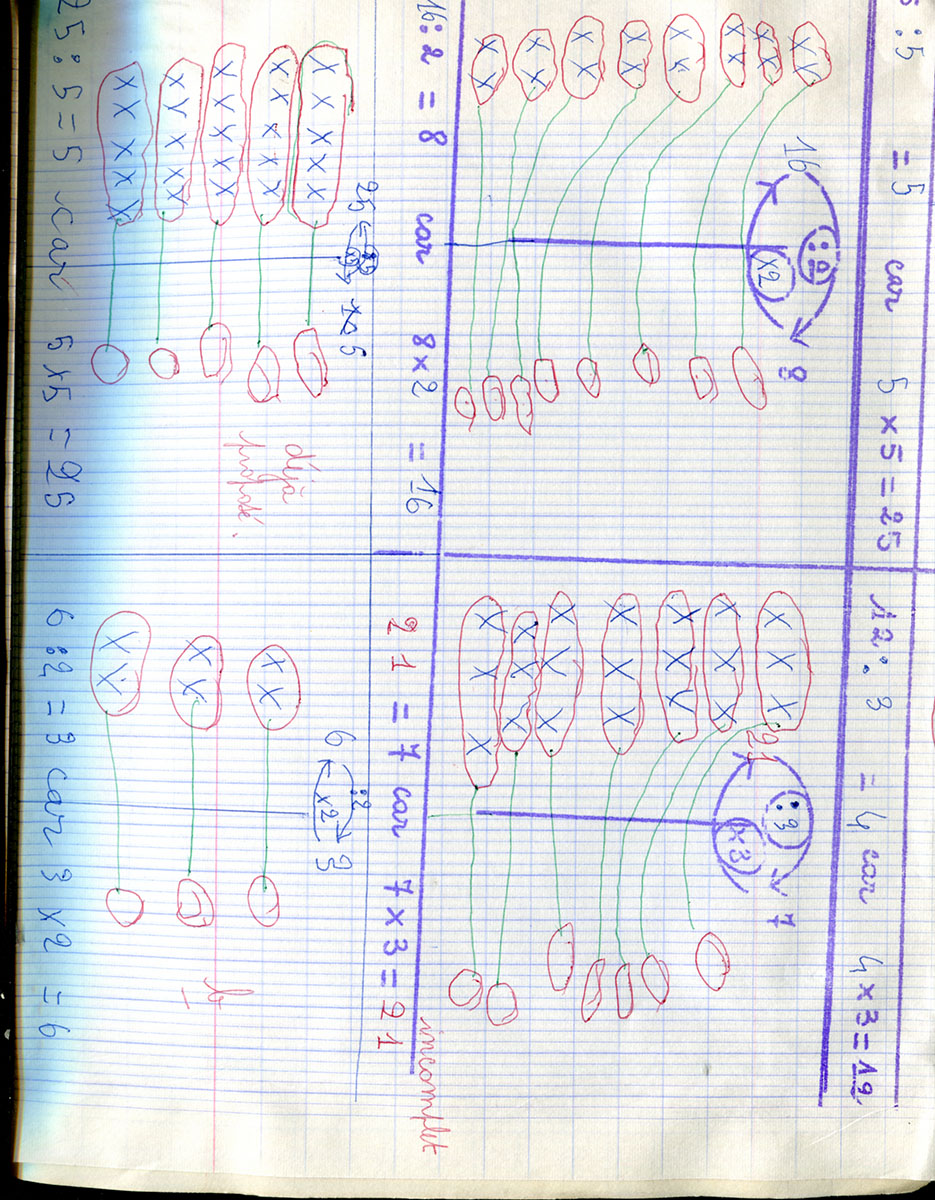 :5 = 5 car 5 × 5 = 25
12 : 3 = 4 car 4 × 3 = 12
:2
16 8
×2
:3
21 7
×3
16 : 2 = 8 car 8 × 2 = 16
21 = 7 car 7 × 3 = 21
incomplet
25 5
:2
6 3
×2
déjà
proposé.
25 : 5 = 5 car 5 × 5 = 25
6 : 2 = 3 car 3 × 2 = 6